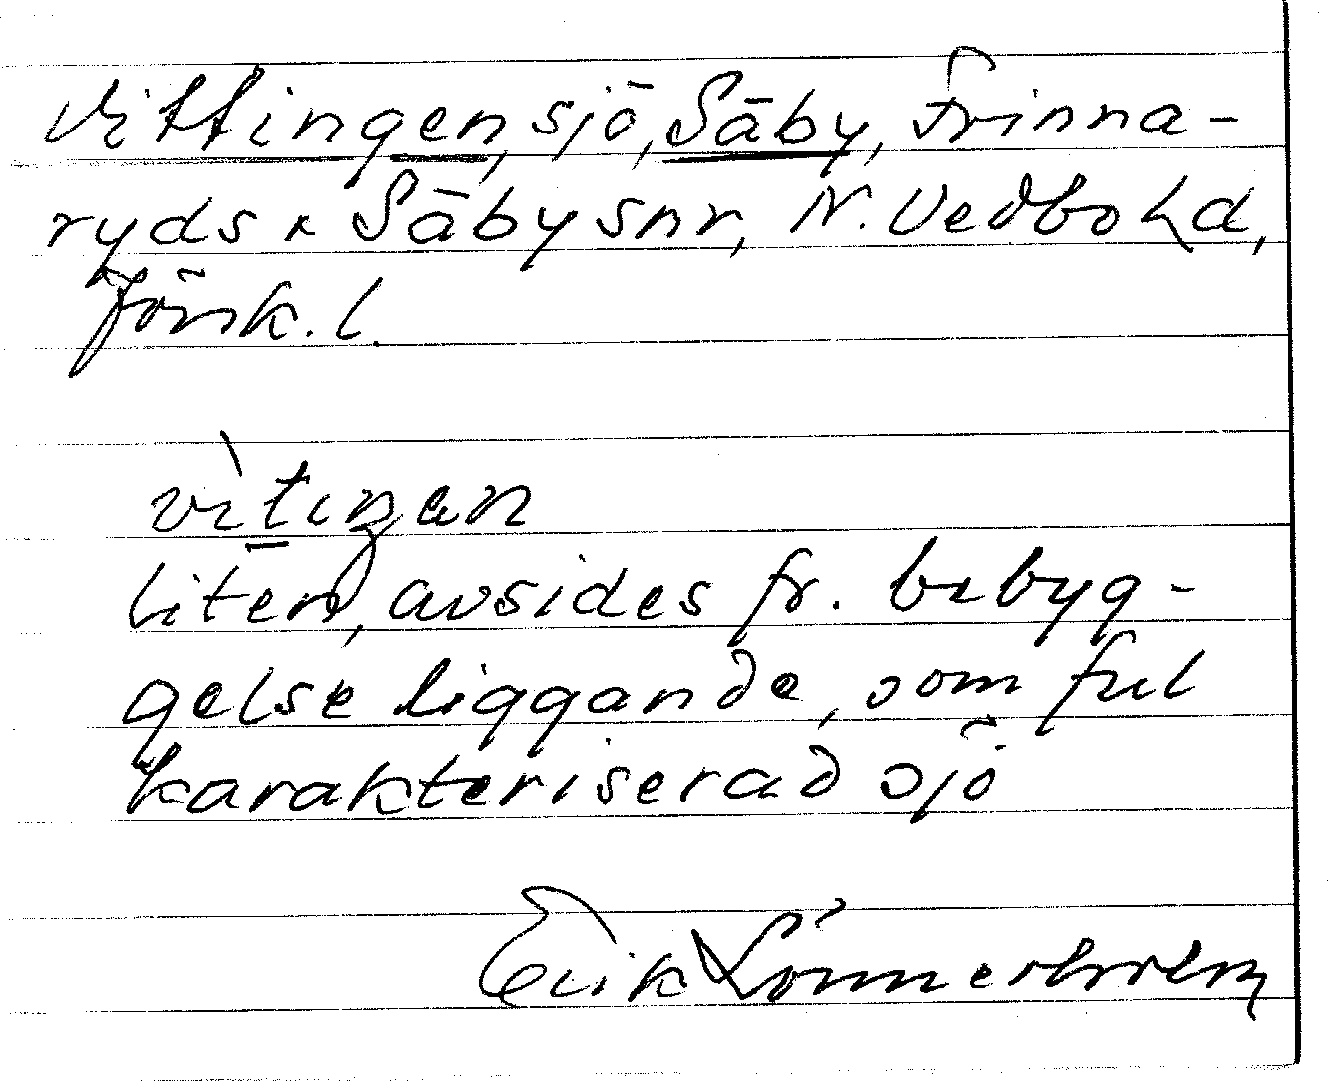 Vittingen, sjö, Säby, Frinna-
ryds o Säby snr, N. Vedbo hd,
Jönk. l.
vìtiŋen
liten, avsides fr. bebyg-
gelse liggande, som ful
karakteriserad sjö
Erik Lönnerholm